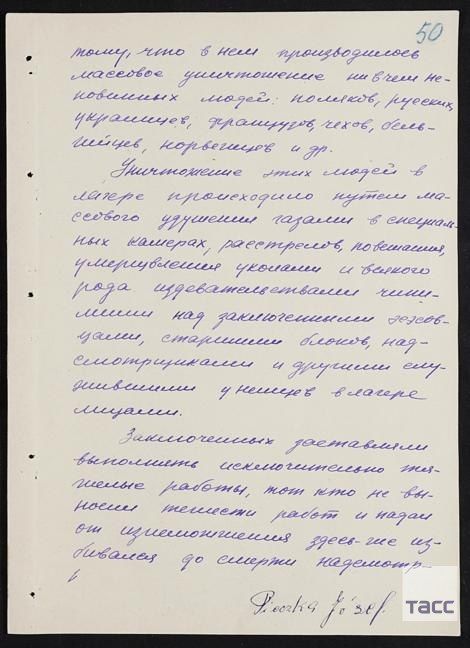 50
тому, что в нем производилось
массовое уничтожение ни в чем не-
повинных людей: поляков, русских,
украинцев, французов, чехов, бель-
гийцев, норвегцев и др.
Уничтожение этих людей в
лагере происходило путем ма-
ссового удушения газами в специаль-
ных камерах, расстрелов, повешания,
умерщвления уколами и всякого
рода издевательствами чини-
мыми над заключенными эсэсов-
цами, старшими блоков, над-
смотрщиками и другими слу-
жившими у немцев в лагере
лицами.
Заключенных заставляли
выполнять исключительно тя-
желые работы, тот кто не вы-
носил тяжести работ и падал
от изнеможения здесь-же из-
бивался до смерти надсмотр-
Józef
ТАСС